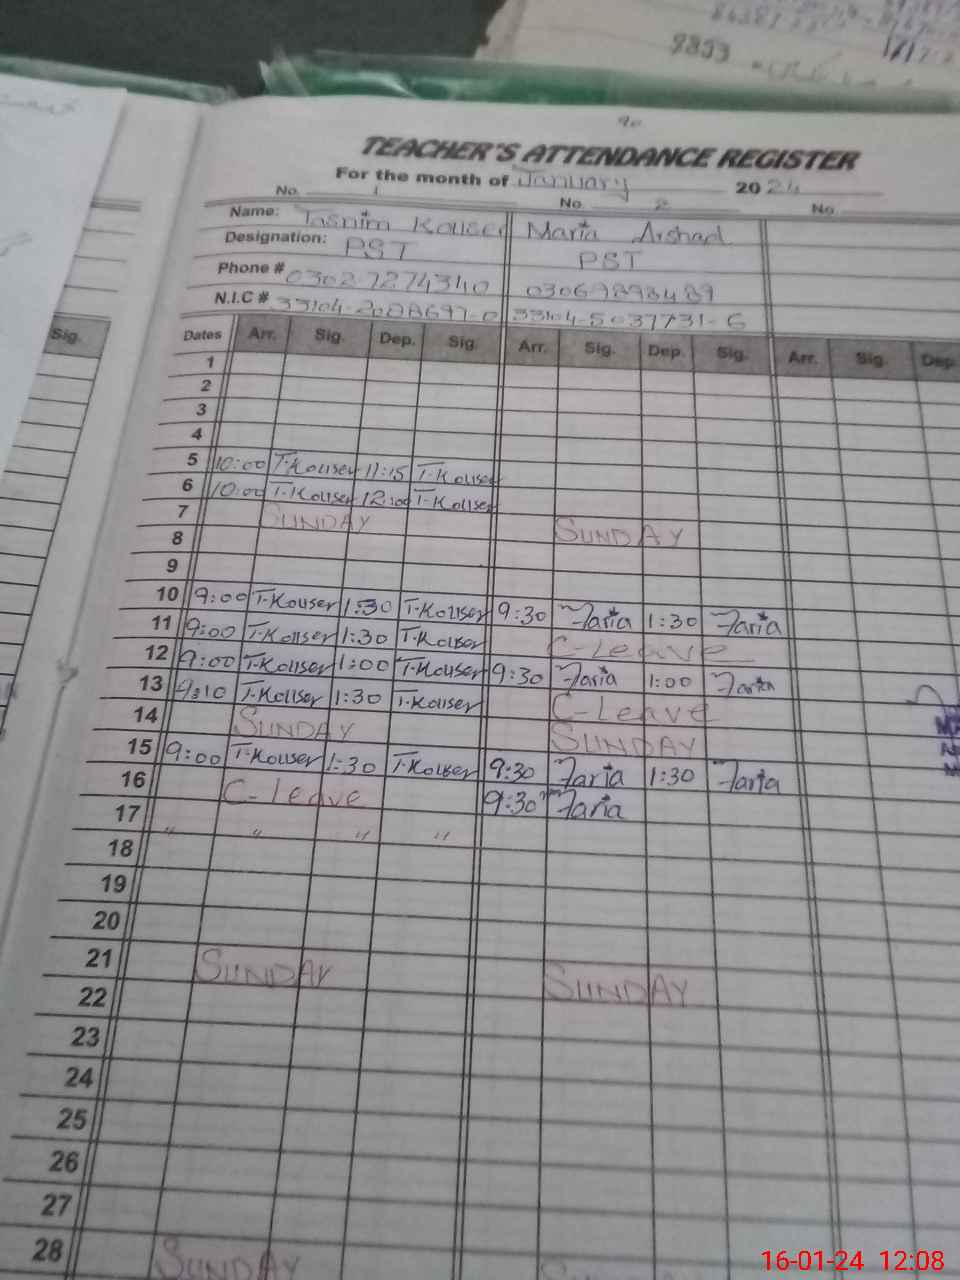 9833
90
TEACHER'S ATTENDANCE REGISTER
For the month of January 2024
No. 1 No. 2 No.
Name: Tasnim Kouser Maria Arshad
Designation: PST PST
Phone # 0302-7274340 03069893489
N.I.C # 33104-5037731-6
Sig.
Dates Arr. Sig. Dep. Sig. Arr. Sig. Dep. Sig. Arr. Sig. Dep.
1
2
3
4
5 10:00 T-Kouser 11:15 T-Kouser
6 10:00 T-Kouser 12:00 T-Kouser
7 SUNDAY SUNDAY
8
9
10 9:00 T-Kouser 1:30 T-Kouser 9:30 Maria 1:30 Maria
11 9:00 T-Kouser 1:30 T-Kouser C-Leave
12 9:00 T-Kouser 1:00 T-Kouser 9:30 Maria 1:00 Maria
13 9:10 T-Kouser 1:30 T-Kouser C-Leave
14 SUNDAY SUNDAY
15 9:00 T-Kouser 1:30 T-Kouser 9:30 Maria 1:30 Maria
16 C-leave 9:30 Maria
17 " " " "
18
19
20
21 SUNDAY SUNDAY
22
23
24
25
26
27
28 SUNDAY
16-01-24 12:08